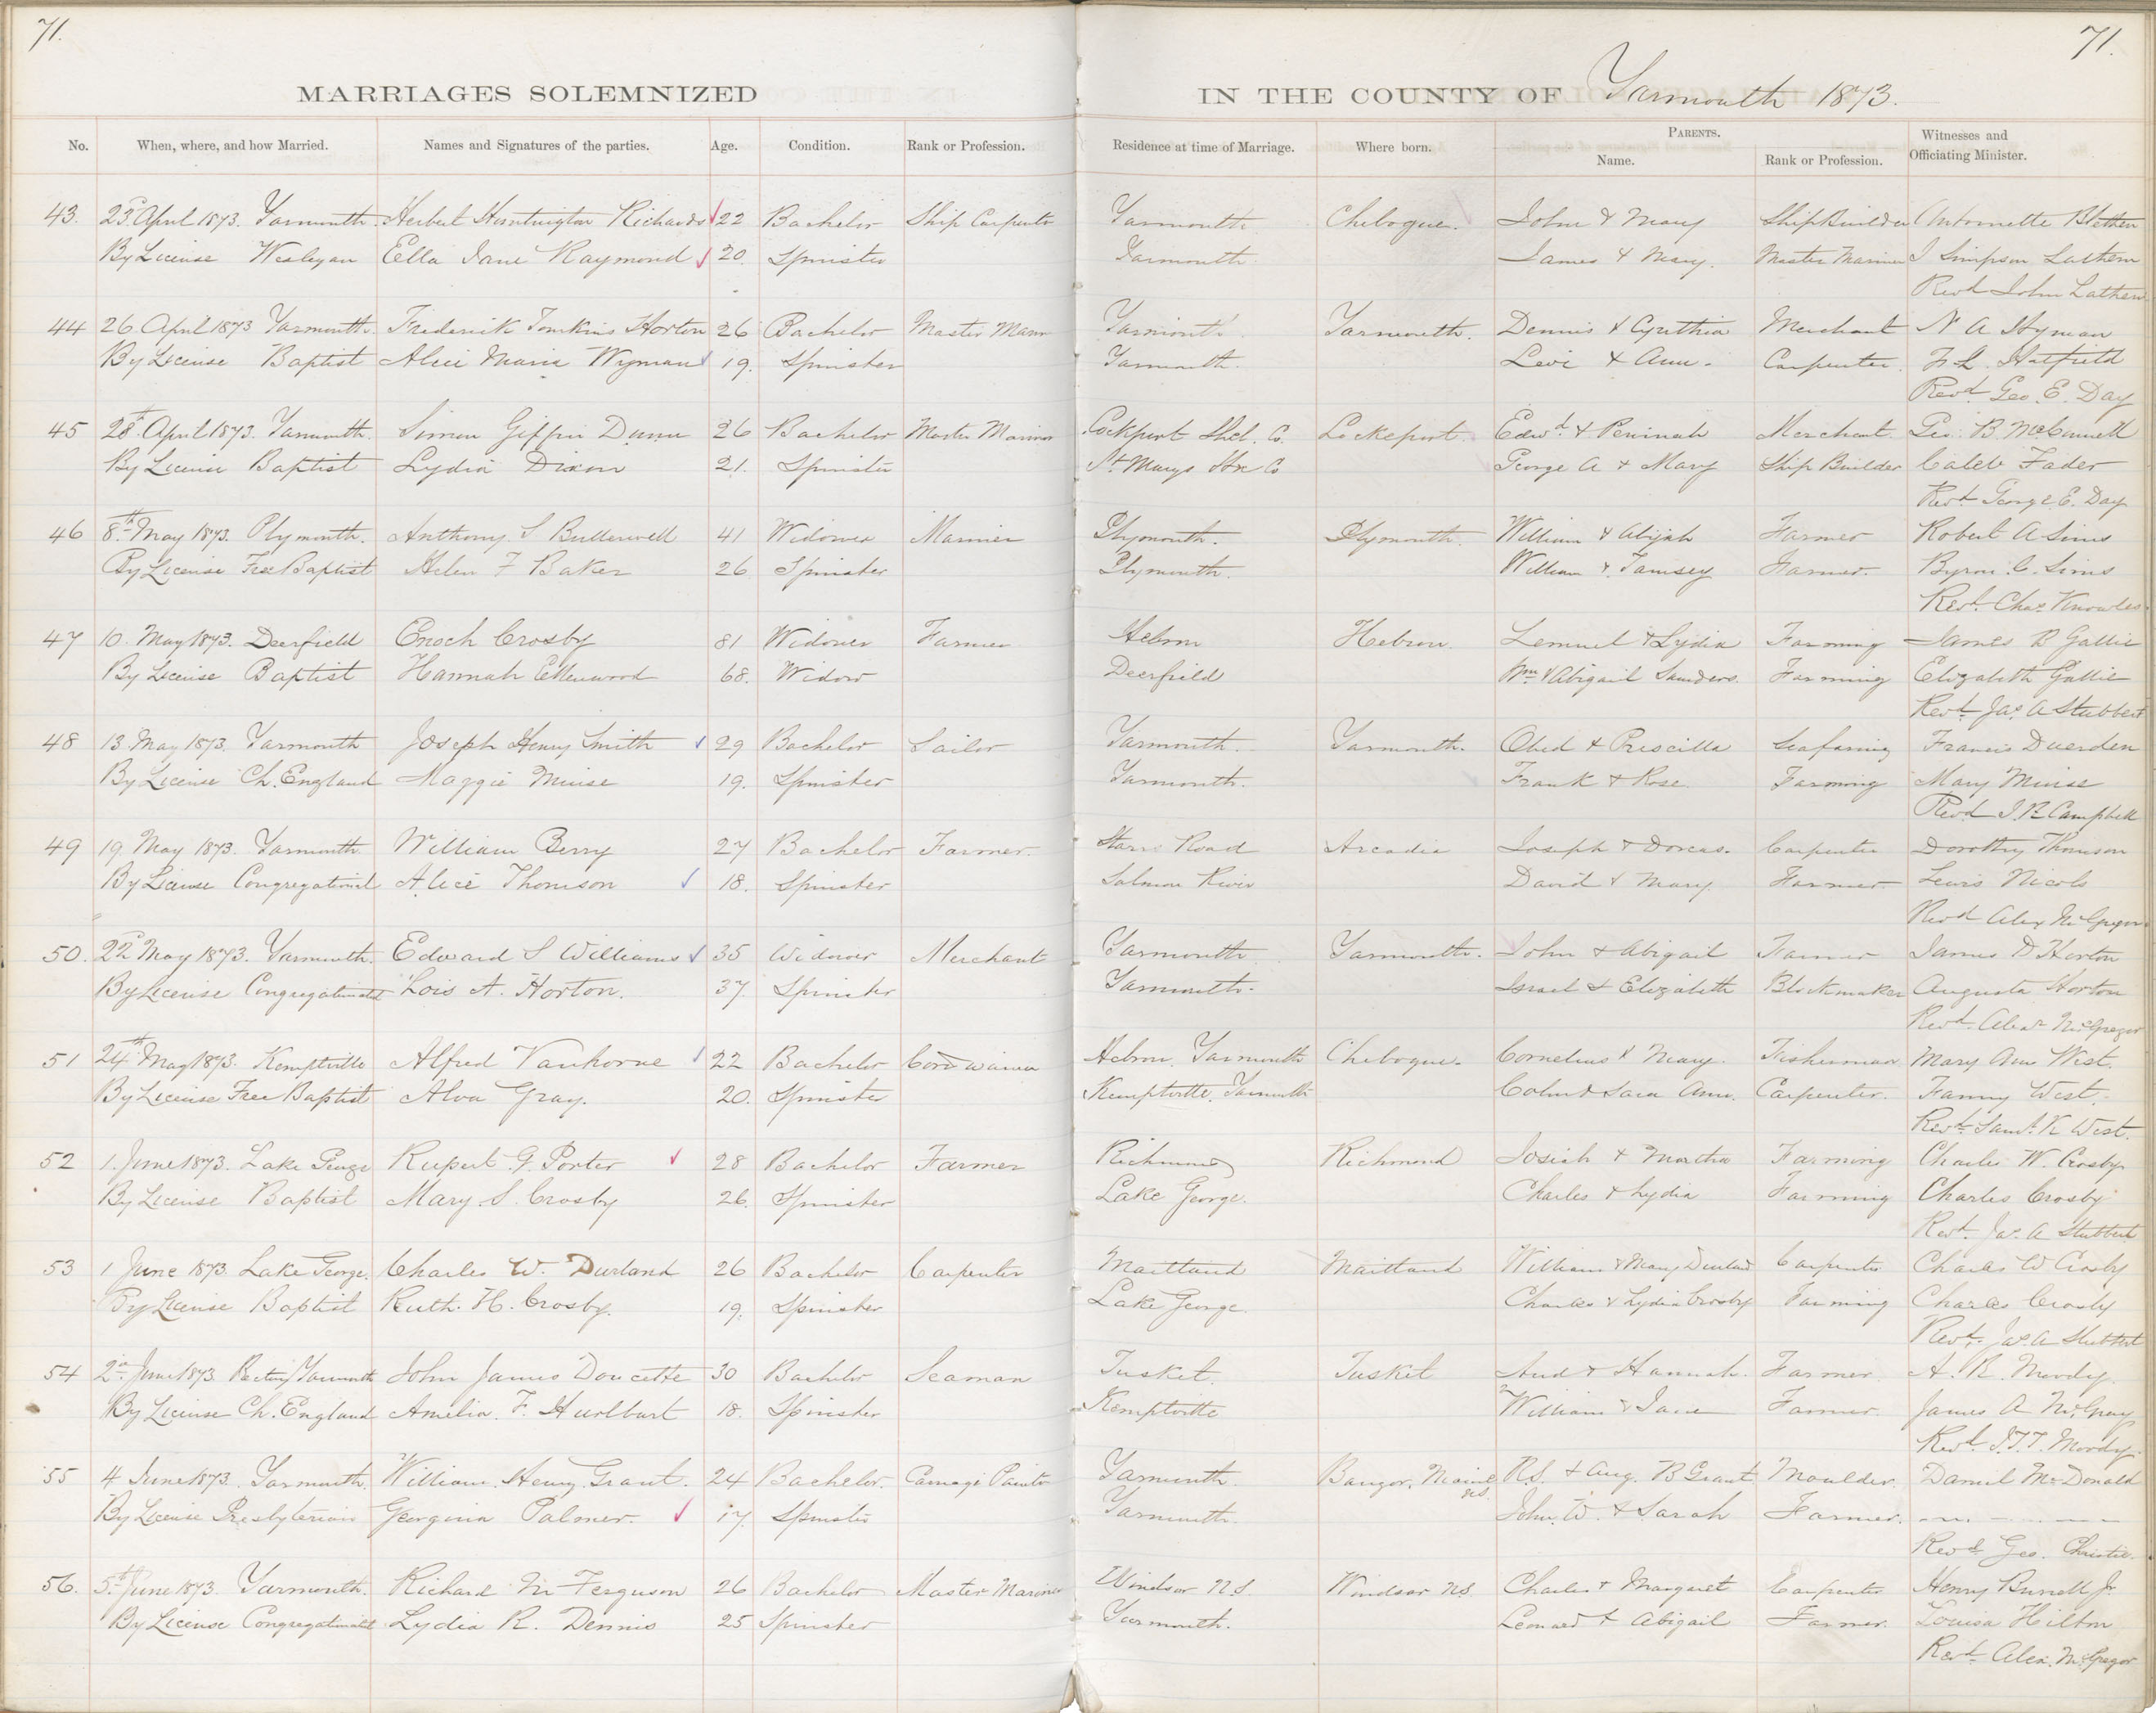 71.
71.
MARRIAGES SOLEMNIZED
IN THE COUNTY OF Yarmouth 1873.
No. When, where, and how Married. Names and Signatures of the parties. Age. Condition. Rank or Profession. Residence at time of Marriage. Where born. PARENTS. Name. Rank or Profession. Witnesses and Officiating Minister.
43. 23d April 1873. Yarmouth. Herbert Huntington Richards 22 Bachelor Ship Carpenter Yarmouth Chebogue. John & Mary ShipBuilder Antoinette Blethen
By License Wesleyan Ella Jane Raymond 20. Spinster Yarmouth James & Mary. Master Mariner J Simpson Lathern
Revd John Lathern.
44 26. April 1873 Yarmouth. Frederick Tomkins Horton 26 Bachelor Master Marn Yarmouth Yarmouth. Dennis & Cynthia Merchant N A Hyman
By License Baptist Alice Maria Wyman 19. Spinster Yarmouth. Levi & Ann. Carpenter. F L. Hatfield
Revd Geo. E. Day
45 28th April 1873. Yarmouth. Simon Giffin Dunn 26 Bachelor Master Mariner Lockport Shel. Co. Lockeport. Edwd & Peninah Merchant. Geo. B. McConnell
By License Baptist Lydia Dixon 21. Spinster St Marys Co George A & Mary Ship Builder Caleb Fader
Revd George E. Day
46 8th May 1873. Plymouth. Anthony S Bullerwell 41 Widower Mariner Plymouth. Plymouth. William & Abijah Farmer Robert A Sims
By License Free Baptist Helen F Baker 26 Spinster Plymouth. William & Tamsey Farmer. Byron. C. Sims
Revd. Chas Knowles.
47 10. May 1873. Deerfield Enoch Crosby 81 Widower Farmer Hebron Hebron. Lemuel & Lydia Farming James B Gallie
By License Baptist Hannah Ellenwood 68. Widow Deerfield Wm & Abigail Saunders. Farming Elizabeth Gallie
Revd. Jas. A Stubbert
48 13 May 1873. Yarmouth Joseph Henry Smith 29 Bachelor Sailor Yarmouth. Yarmouth. Obed & Priscilla Seafaring Francis Duerden
By License Ch. England Maggie Muise 19. Spinster Yarmouth. Frank & Rose. Farming Mary Muise
Revd J. R. Campbell
49 19. May 1873. Yarmouth William Berry 27 Bachelor Farmer. Starrs Road Arcadia Joseph & Dorcas. Carpenter Dorothy Thomson
By License Congregational Alice Thomson 18. Spinster Salmon River David & Mary Farmer Lewis Nicols
Revd Alex McGregor.
50. 22d May 1873. Yarmouth. Edward S Williams 35 Widower Merchant Yarmouth Yarmouth. John & Abigail Farmer James D Horton
By License Congregational Lois A. Horton. 37. Spinster Yarmouth. Israel & Elizabeth Blockmaker Augusta Horton
Revd. Alexr McGregor
51 24th May 1873. Kemptville Alfred Vanhorne 22 Bachelor Cordwainer Hebron. Yarmouth Chebogue. Cornelius & Mary Fisherman Mary Ann West.
By License Free Baptist Alva Gray. 20. Spinster Kemptville. Yarmouth Colin & Sara Ann. Carpenter. Fanny West.
Revd. Saml. K West.
52 1. June 1873. Lake George Rupert G. Porter 28 Bachelor Farmer Richmond Richmond Josiah & Martha Farming Charles W. Crosby
By License Baptist Mary. S. Crosby 26. Spinster Lake George. Charles & Lydia Farming Charles Crosby
Revd. Jas. A Stubbert
53 1 June 1873. Lake George. Charles W. Durland 26 Bachelor Carpenter Maitland Maitland William & Mary Durland Carpenter Charles W Crosby
By License Baptist Ruth. H. Crosby. 19. Spinster Lake George. Charles & Lydia Crosby Farming Charles Crosby
Revd. Jas. A Stubbert
54 2d June 1873 Rectory Yarmouth John James Doucette 30 Bachelor Seaman Tusket. Tusket & Hannah. Farmer. A. R. Moody.
By License Ch. England Amelia. F. Hurlburt 18. Spinster Kemptville William & Jane Farmer James A McGray
Revd. J. T. T. Moody.
55 4 June 1873. Yarmouth. William. Henry. Grant. 24 Bachelor. Carriage Painter Yarmouth. Bangor, Maine U.S. R. S. & Aug. B Grant. Moulder. Daniel McDonald
By License Presbyterian Georgina Palmer. 17. Spinster Yarmouth. John. W. & Sarah Farmer.
Revd Geo. Christie.
56. 5th June 1873. Yarmouth. Richard M Ferguson 26 Bachelor Master Mariner Windsor N.S. Windsor N.S. Charles & Margaret Carpenter Henry Burrell Jr.
By License Congregational Lydia R. Dennis 25 Spinster Yarmouth. Leonard & Abigail Farmer. Louisa Hilton
Revd. Alex. McGregor